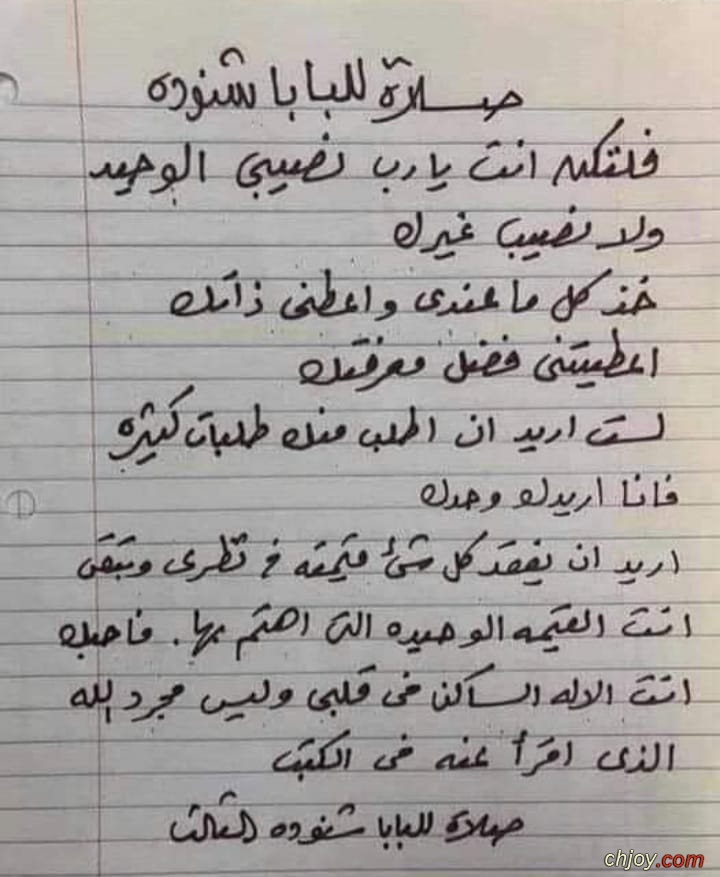 صلاة للبابا شنوده
فلتكن انت يارب نصيبي الوحيد
ولا نصيب غيرك
خذ كل ما عندى واعطنى ذاتك
اعطيتنى فضل معرفتك
لست اريد ان اطلب منك طلبات كثيره
فانا اريدك وحدك
اريد ان يفقد كل شئ قيمته في نظرى وتبقى
انت القيمه الوحيده التى اهتم بها. فاحبك
انت الاله الساكن فى قلبى وليس مجرد الله
الذى اقرأ عنه فى الكتب
صلاة للبابا شنوده الثالث
chjoy.com